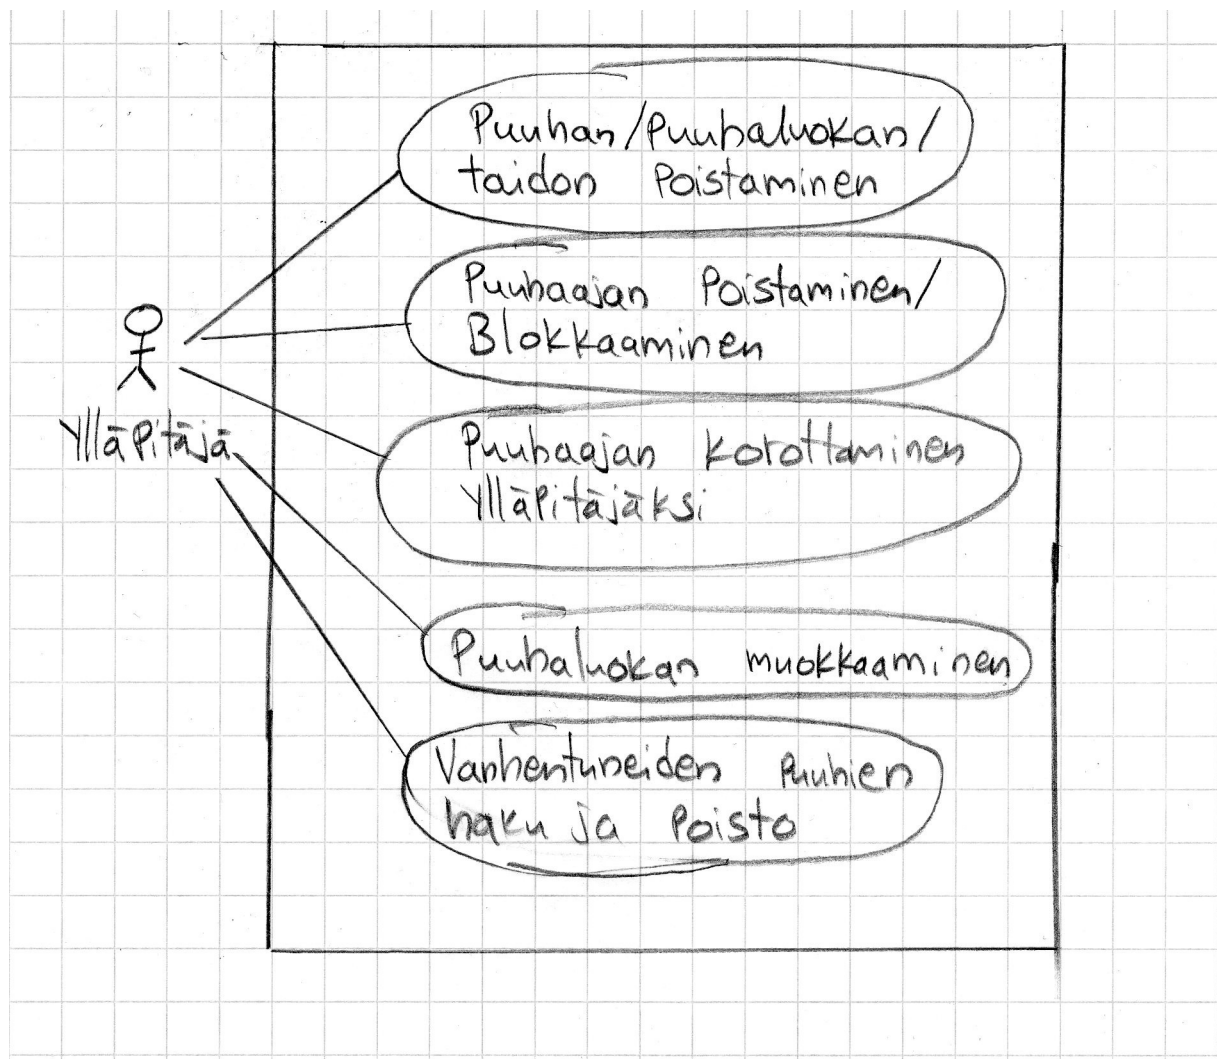 Puuhan/Puuhaluokan/
taidon Poistaminen
Puuhaajan Poistaminen/
Blokkaaminen
Ylläpitäjä
Puuhaajan korottaminen
Ylläpitäjäksi
Puuhaluokan muokkaaminen
Vanhentuneiden Puuhien
haku ja Poisto